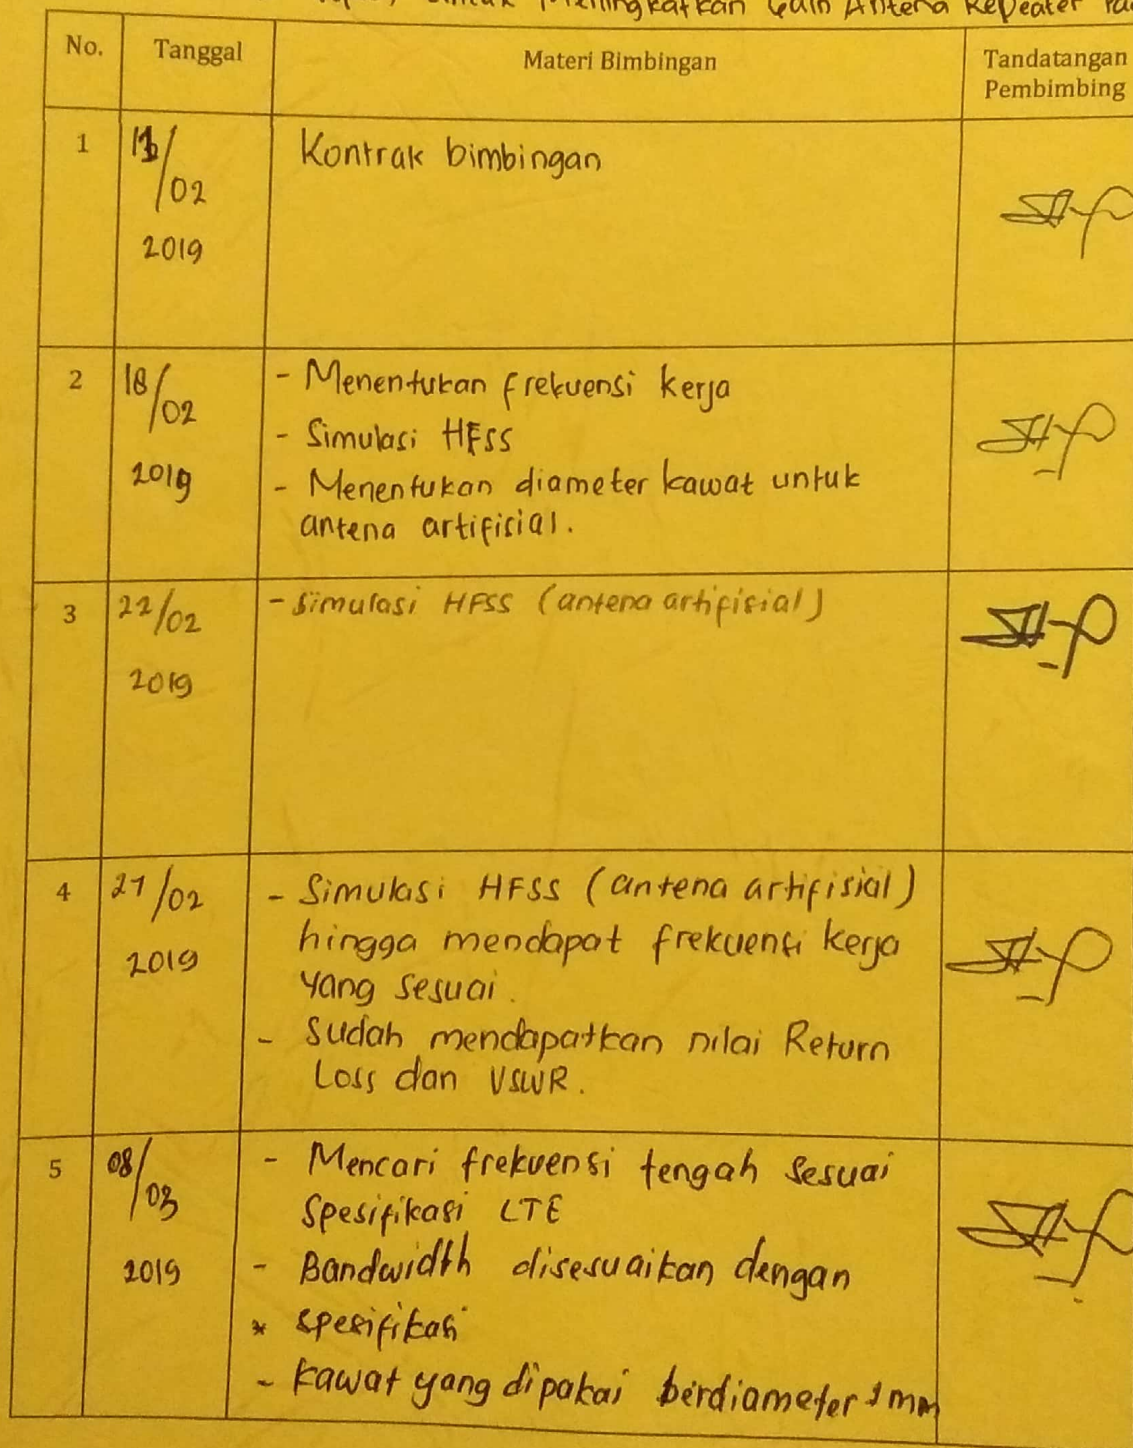 untuk Meningkatkan Gain Antena Repeater
No. Tanggal Materi Bimbingan Tandatangan Pembimbing
1 /02 2019 Kontrak bimbingan
2 18/02 2019 - Menentukan frekuensi kerja
- Simulasi HFSS
- Menentukan diameter kawat untuk
antena artifisial.
3 22/02 2019 - Simulasi HFSS (antena artifisial)
4 27/02 2019 - Simulasi HFSS (antena artifisial)
hingga mendapat frekuensi kerja
yang sesuai.
- Sudah mendapatkan nilai Return
Loss dan VSWR.
5 08/03 2019 - Mencari frekuensi tengah sesuai
spesifikasi LTE
- Bandwidth disesuaikan dengan
* spesifikasi
- kawat yang dipakai berdiameter 1 mm